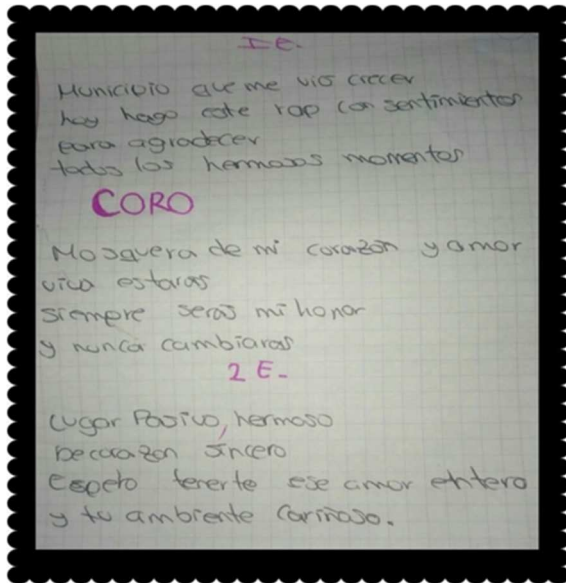 I E.
Municipio que me vio crecer
hoy hago este rap con sentimientos
para agradecer
todos los hermosos momentos
CORO
Mosquera de mi corazón y amor
viva estaras
siempre seras mi honor
y nunca cambiaras
2 E-
Lugar Pasivo, hermoso
De corazon sincero
Espeto tenerte ese amor entero
y tu ambiente Cariñoso.